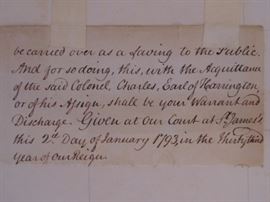 be carried over as a Saving to the Public.
And for so doing, this, with the Acquittance
of the said Colonel, Charles, Earl of Harrington,
or of his Assign, shall be your Warrant and
Discharge. Given at Our Court at St. James's
this 2d. Day of January 1793, in the Thirty third
Year of Our Reign.